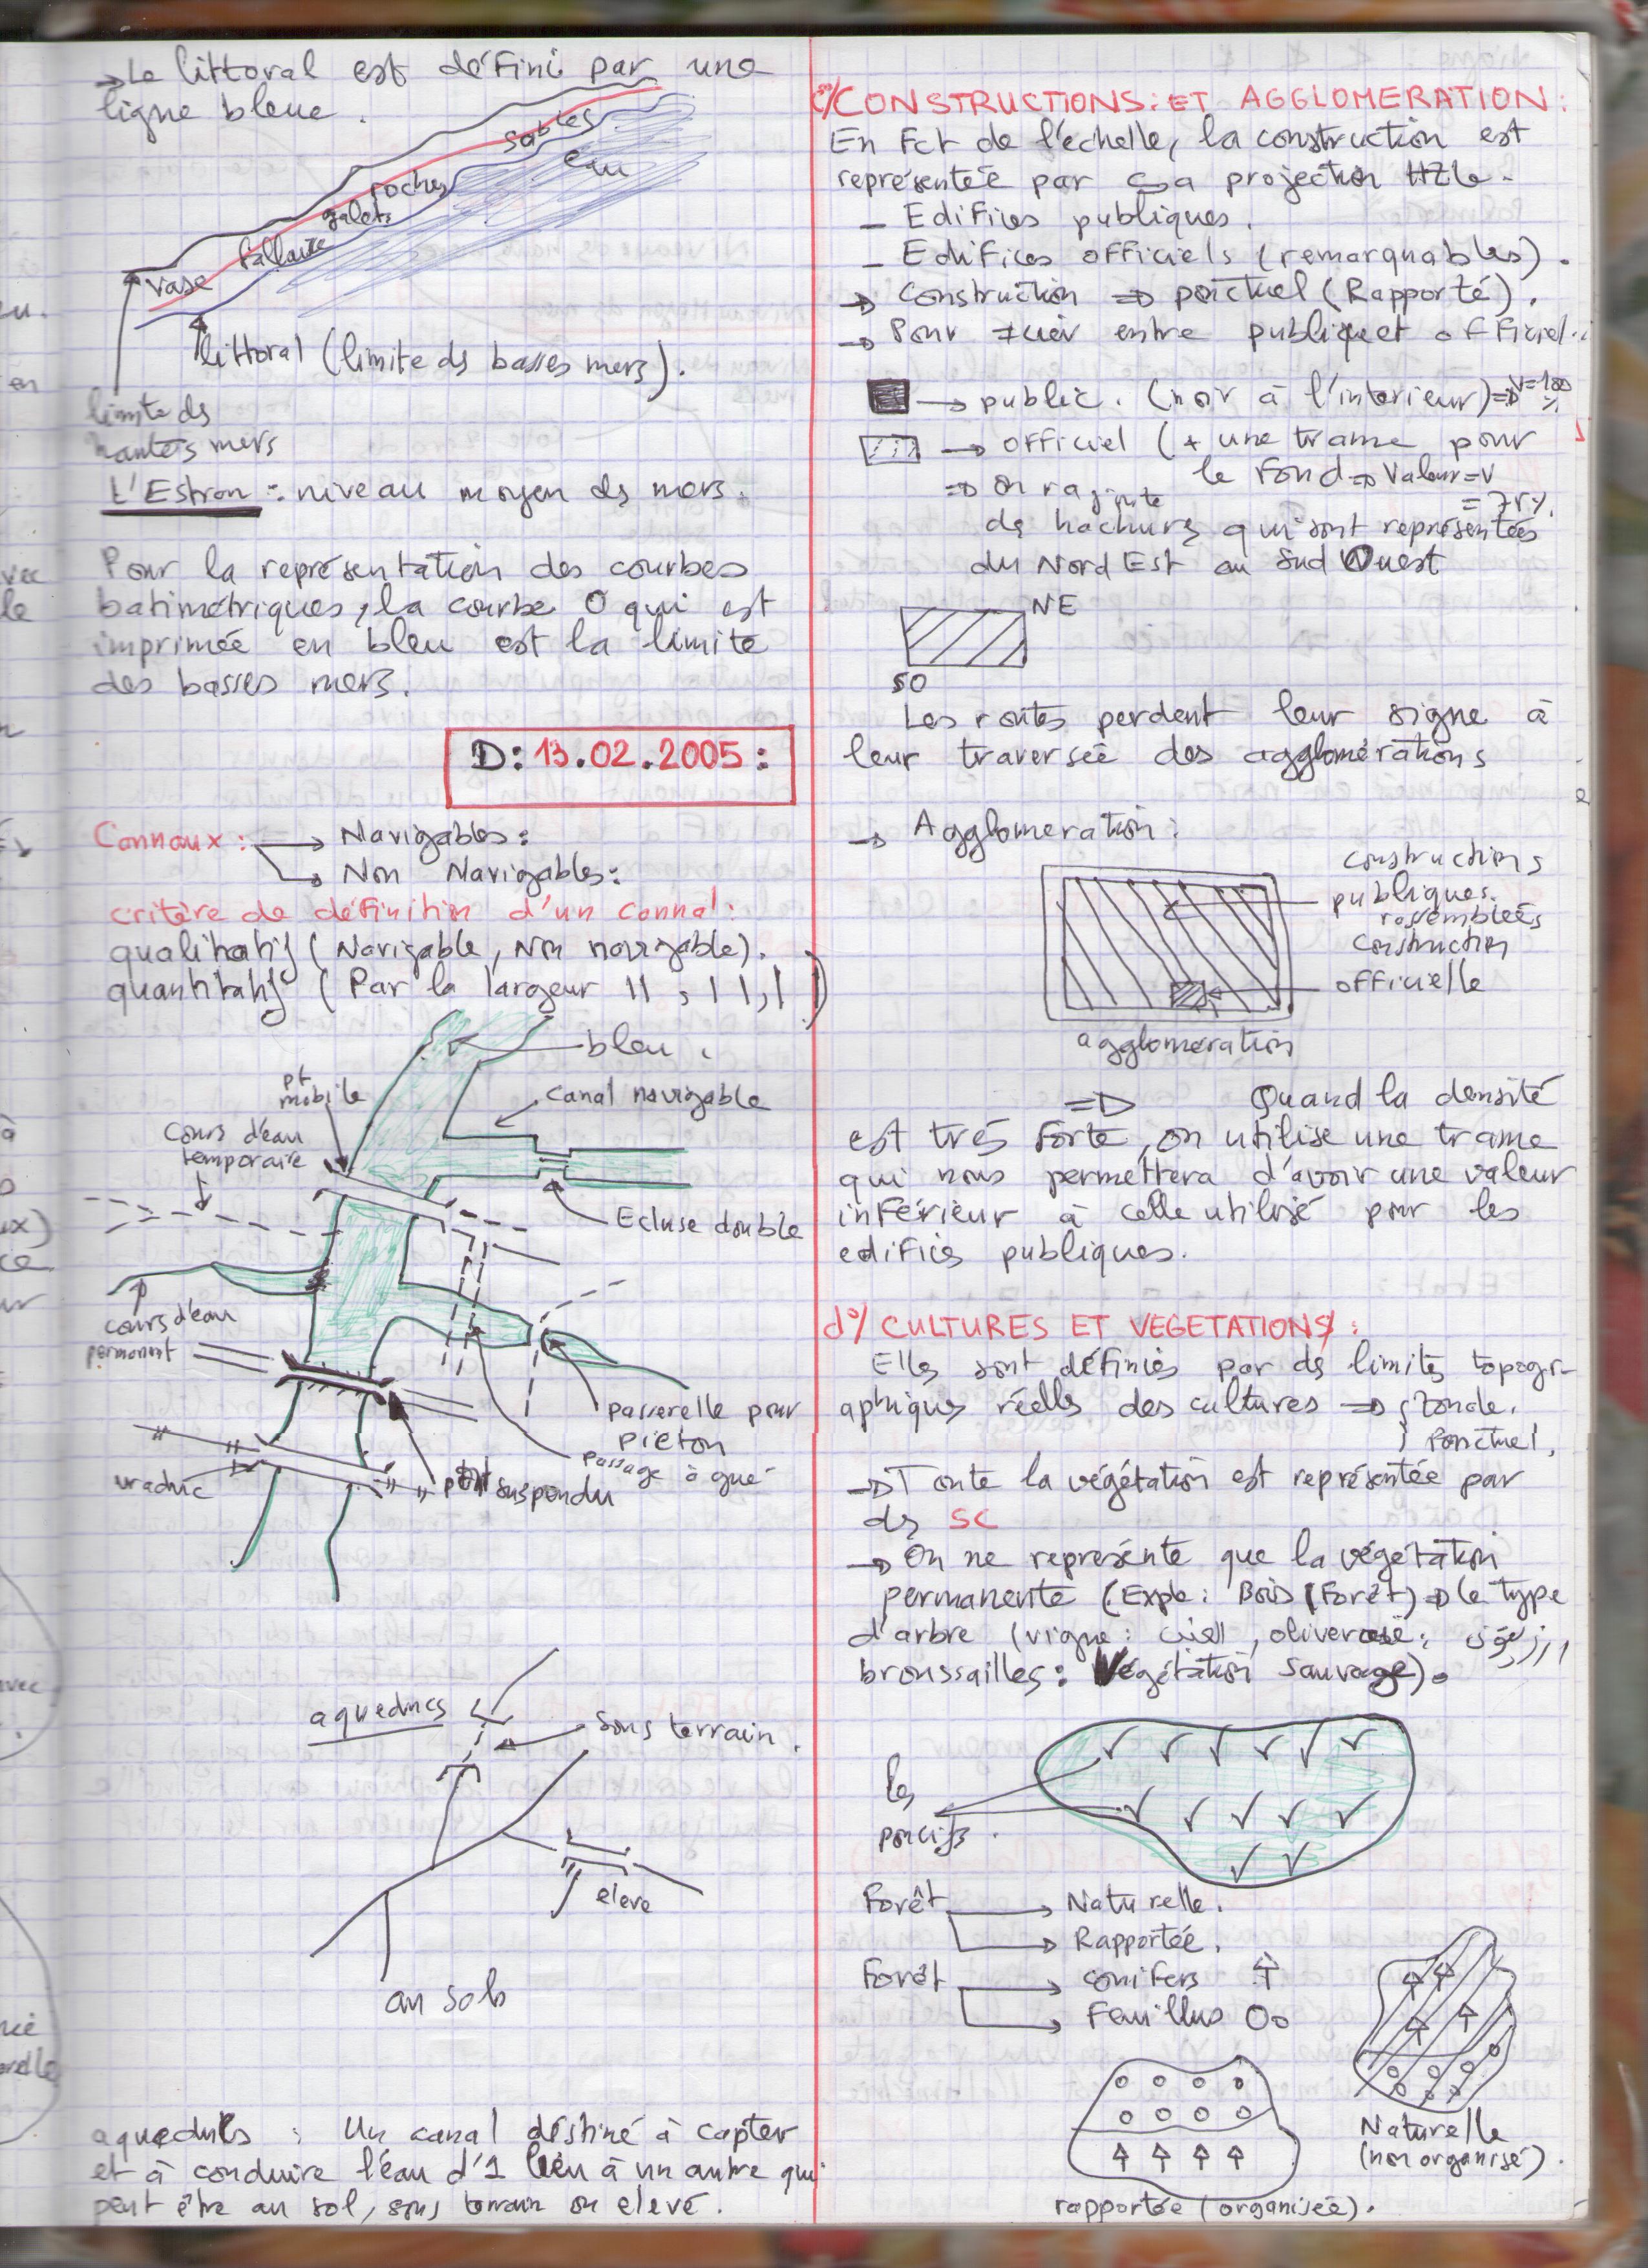 → Le littoral est défini par une
ligne bleue.
sables
eau
roches
galets
fallaise
vase
littoral (limite ds basses mers).
limite ds
hautes mers
L'Estron : niveau moyen ds mers.
Pour la représentation des courbes
batimétriques, la courbe 0 qui est
imprimée en bleu est la limite
des basses mers.
D: 13.02.2005 :
Cannaux : → Navigables :
→ Non Navigables :
critère de définition d'un cannal :
qualitatif (Navigable, Non navigable).
quantitatif (Par la largeur
bleu.
pt
mobile
canal navigable
cours d'eau
temporaire
Ecluse double
cours d'eau
permanent
passerelle pour
piéton
passage à gué
viaduc
pont suspendu
aqueducs
Sous terrain.
élevé
au sol
aqueducs : Un canal déstiné à capter
et à conduire l'eau d'1 lieu à un autre qui
peut être au sol, sous terrain ou elevé.
c°/ CONSTRUCTIONS: ET AGGLOMERATION :
En Fct de l'échelle, la construction est
représentée par sa projection HZle.
- Edifices publiques.
- Edifices officiels (remarquables).
→ Construction ⇒ ponctuel (Rapporté).
→ Pour ≠cier entre public et officiel.
→ public. (noir à l'interieur) ⇒ V=100
%
→ officiel (+ une trame pour
le Fond ⇒ Valeur=V
⇒ on rajoute
de hachures qui sont représentées
du Nord Est au Sud Ouest
NE
SO
Les routes perdent leur signe à
leur traversée des agglomérations
→ Agglomeration :
constructions
publiques
rassemblées
construction
officielle
agglomeration
⇒ Quand la densité
est trés Forte, on utilise une trame
qui nous permettera d'avoir une valeur
inférieur à celle utilisé pour les
edifices publiques.
d°/ CULTURES ET VEGETATIONS :
Elles sont définies par ds limites topogr-
aphiques réelles des cultures ⇒ { zonale.
{ Ponctuel.
→ Toute la végétation est représentée par
ds SC
→ On ne représente que la végétation
permanente (Exple : Bois (Forêt) ⇒ le type
d'arbre (vigne :
broussailles : Végétation sauvage).
les
poncifs.
Forêt → Naturelle.
→ Rapportée.
Forêt → conifers
→ Feuillus
Naturelle
(non organisé).
rapportée (organisée).